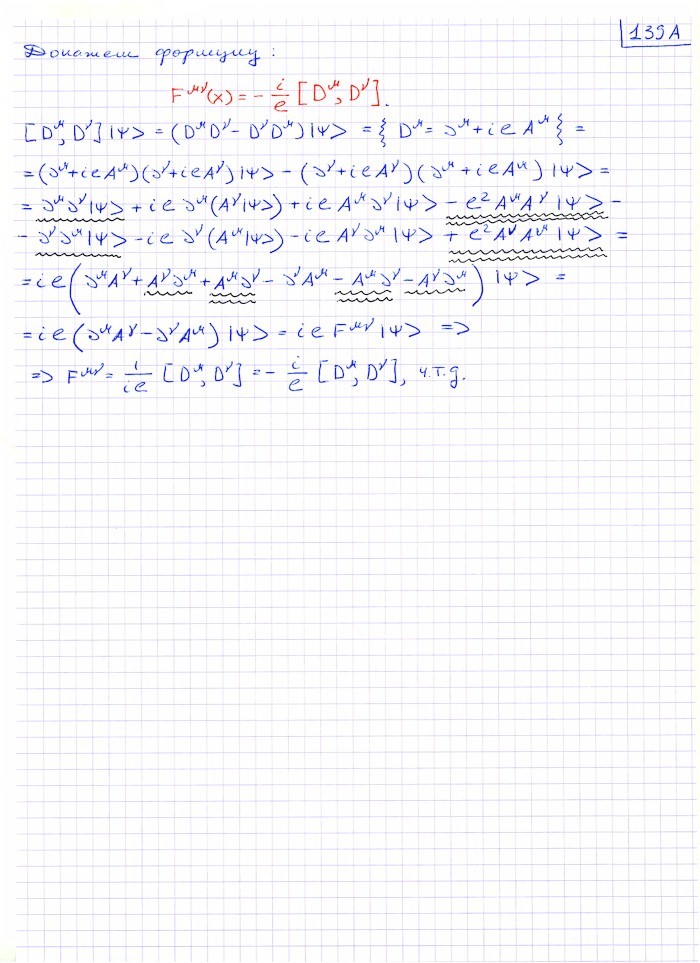 139А
Докажем формулу:
F^{μν}(x) = - i/e [D^μ, D^ν].
[D^μ, D^ν]|Ψ> = (D^μD^ν - D^νD^μ)|Ψ> = { D^μ = ∂^μ + ieA^μ } =
= (∂^μ + ieA^μ)(∂^ν + ieA^ν)|Ψ> - (∂^ν + ieA^ν)(∂^μ + ieA^μ)|Ψ> =
= ∂^μ∂^ν|Ψ> + ie∂^μ(A^ν|Ψ>) + ieA^μ∂^ν|Ψ> - e²A^μA^ν|Ψ> -
- ∂^ν∂^μ|Ψ> - ie∂^ν(A^μ|Ψ>) - ieA^ν∂^μ|Ψ> + e²A^νA^μ|Ψ> =
= ie(∂^μA^ν + A^ν∂^μ + A^μ∂^ν - ∂^νA^μ - A^μ∂^ν - A^ν∂^μ)|Ψ> =
= ie(∂^μA^ν - ∂^νA^μ)|Ψ> = ieF^{μν}|Ψ> =>
=> F^{μν} = 1/ie [D^μ, D^ν] = - i/e [D^μ, D^ν], ч.т.д.